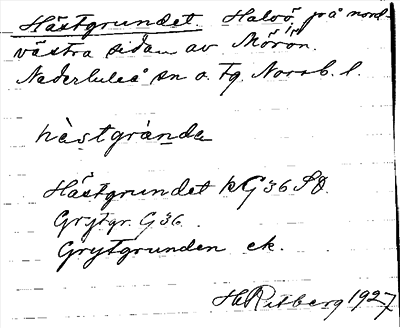 Hästgrundet. Halvö på nord-
västra sidan av Mörön.
Nederluleå sn o. tg. Norrb. l.
hästgrànda
Hästgrundet kG 36 SO.
Grytgr. G 36.
Grytgrunden ek.
H Ritberg 1927